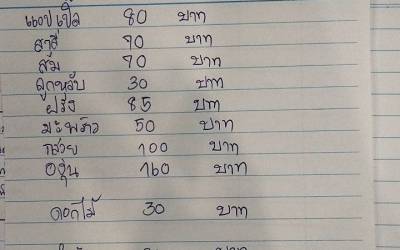 แอปเปิ้ล 80 บาท
สาลี่ 70 บาท
ส้ม 70 บาท
ลูกพลับ 30 บาท
ฝรั่ง 85 บาท
มะพร้าว 50 บาท
กล้วย 100 บาท
องุ่น 160 บาท
ดอกไม้ 30 บาท